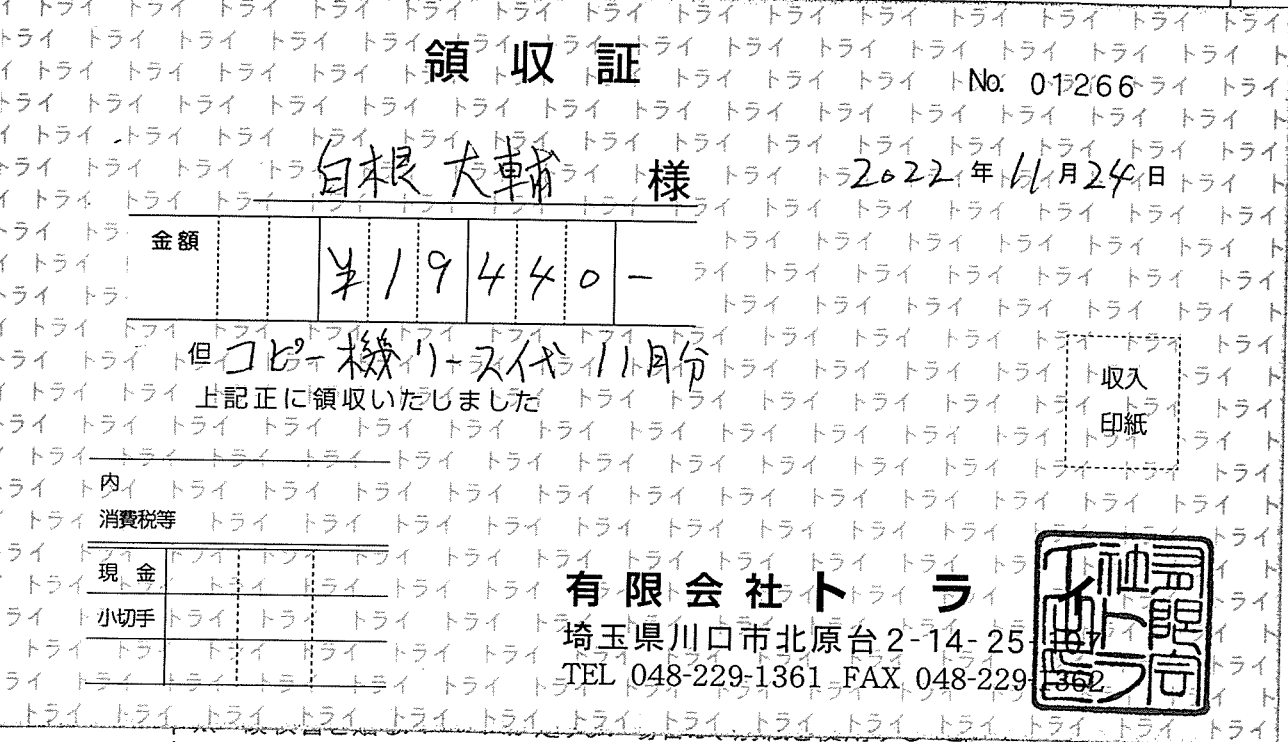 領収証
No. 01266
白根 大輔 様
2022年11月24日
金額 ¥19440-
但 コピー機リース代 11月分
上記正に領収いたしました
収入
印紙
内
消費税等
現金
小切手
有限会社トライ
埼玉県川口市北原台2-14-25-107
TEL 048-229-1361 FAX 048-229-1362